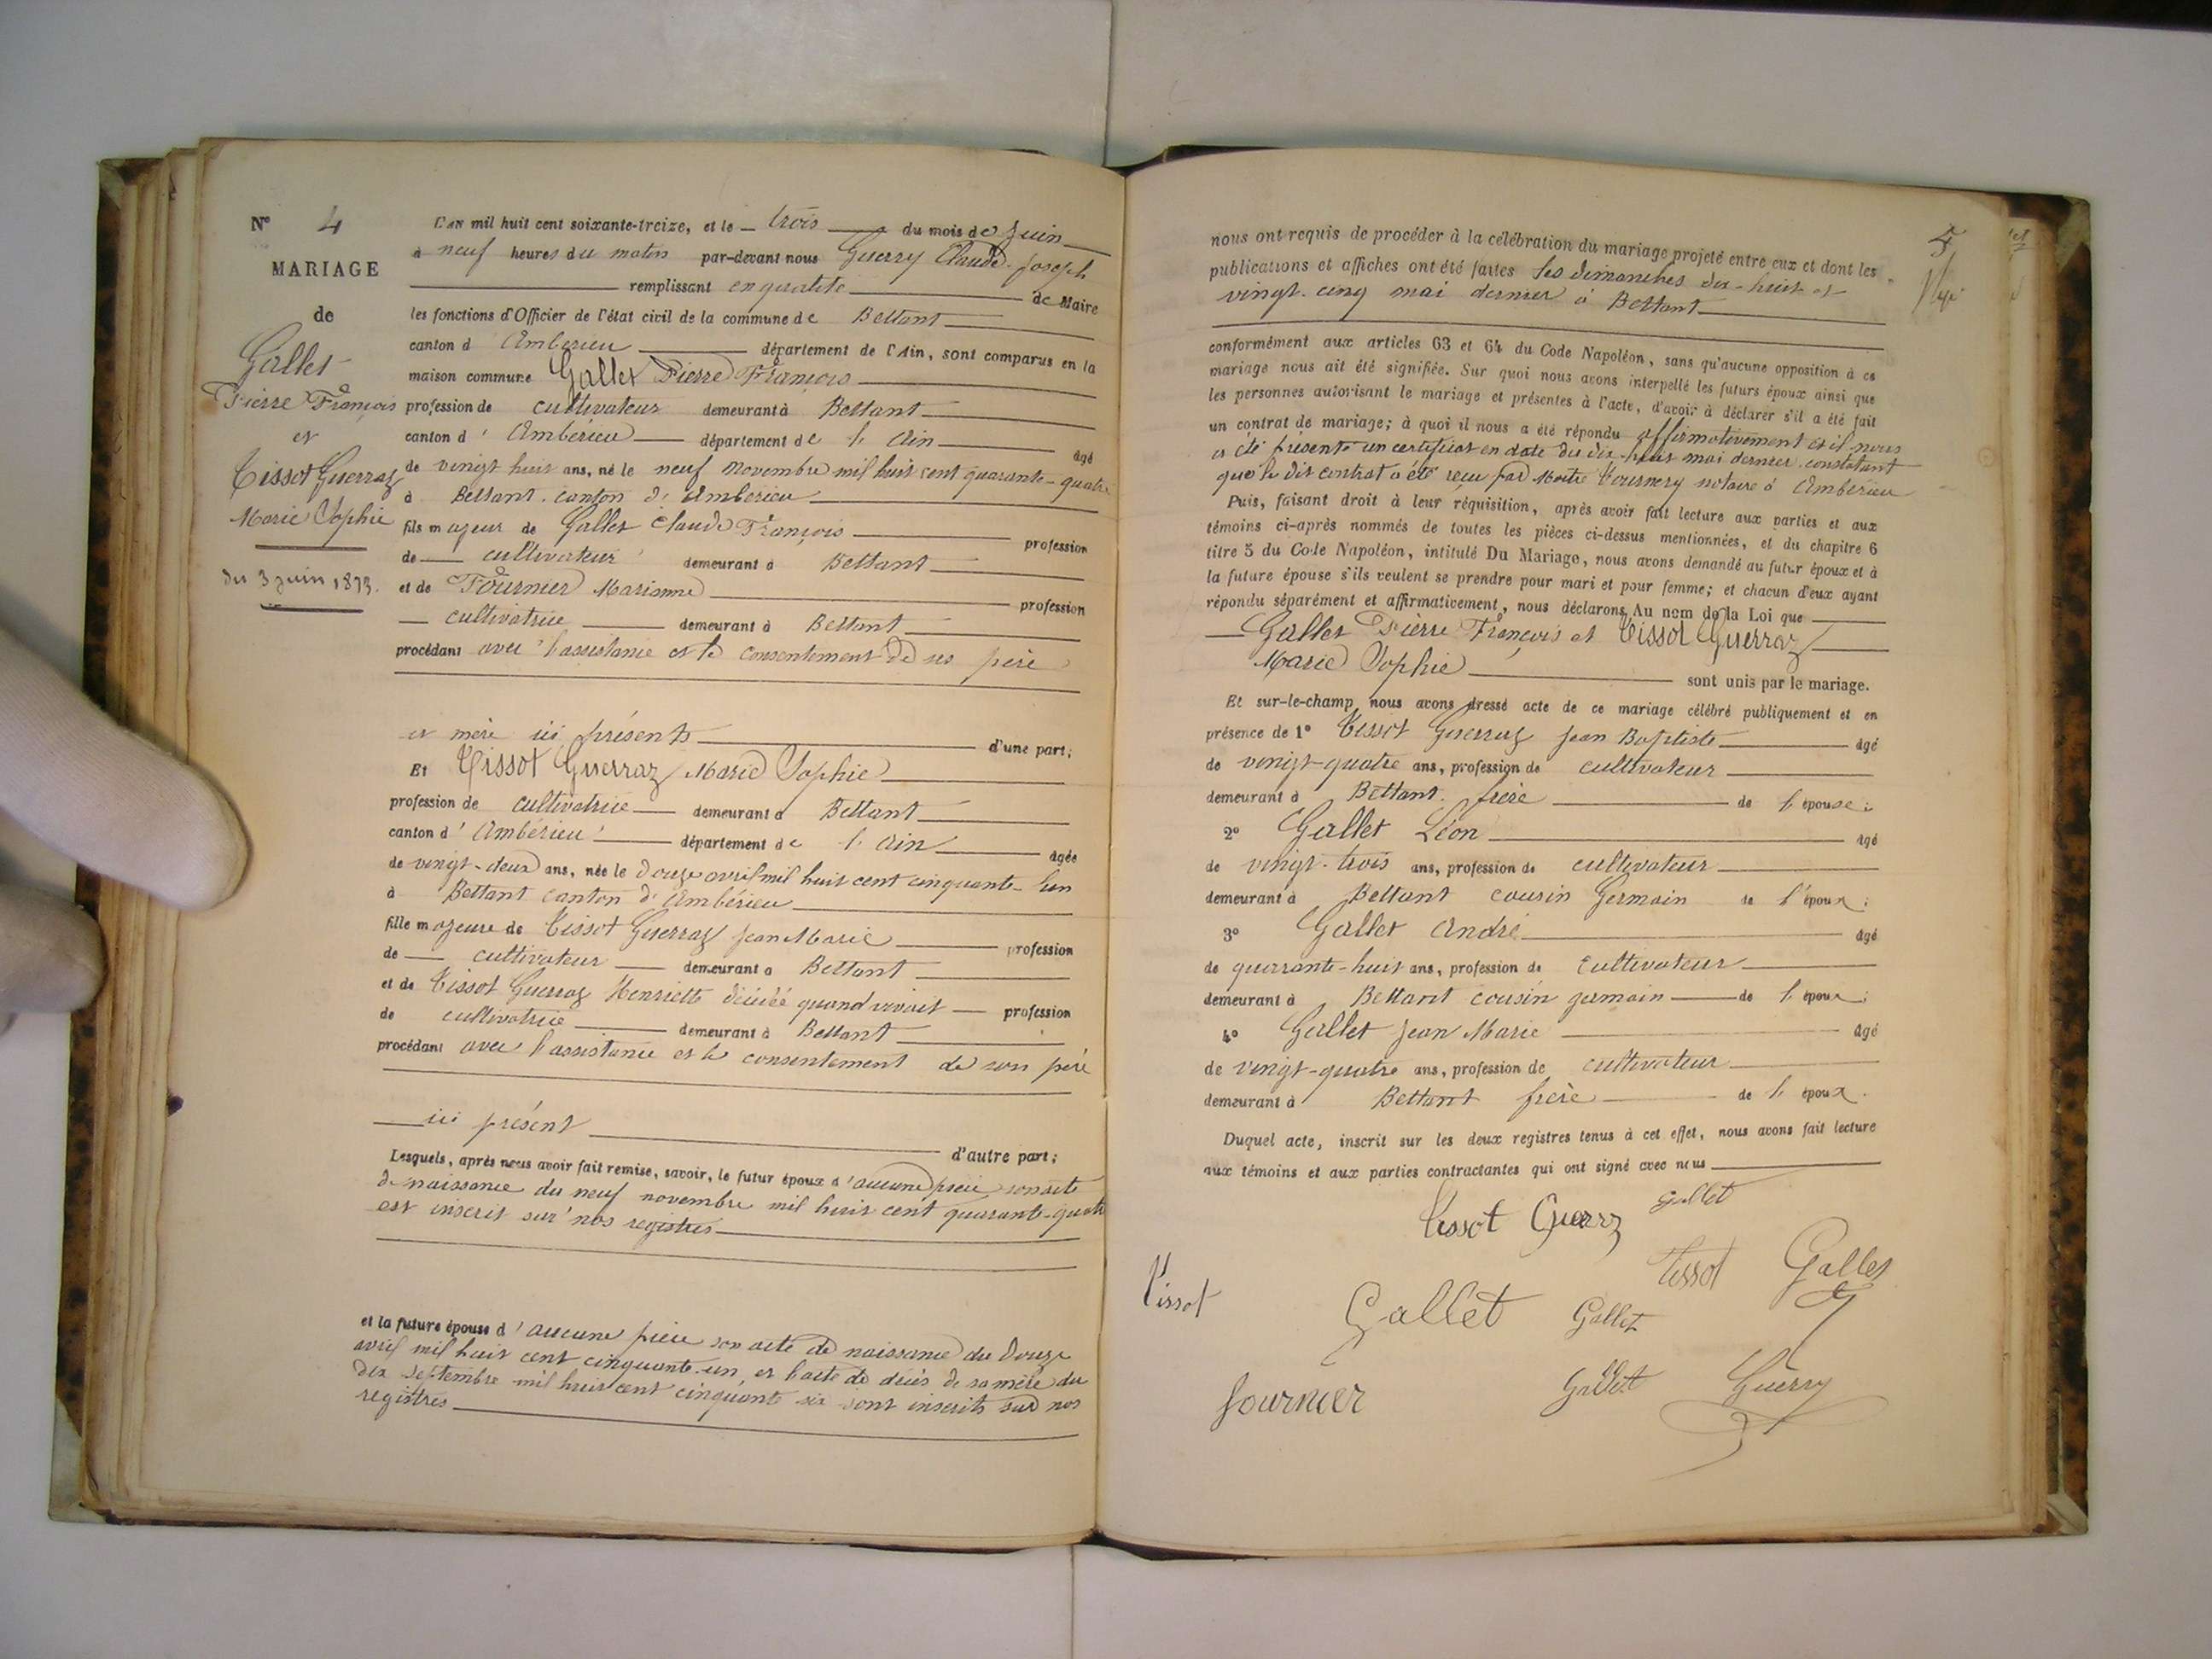 N° 4
MARIAGE
de
Gallet
Pierre François
et
Tissot Guerraz
Marie Sophie
du 3 juin 1873.
L'an mil huit cent soixante-treize, et le trois du mois de juin
à neuf heures du matin par-devant nous Guerry Claude Joseph
remplissant en qualité de Maire
les fonctions d'Officier de l'état civil de la commune de Bettant
canton d Ambérieu département de l'Ain, sont comparus en la
maison commune Gallet Pierre François
profession de cultivateur demeurant à Bettant
canton d' Ambérieu département de l'Ain âgé
de vingt huit ans, né le neuf novembre mil huit cent quarante-quatre
à Bettant canton d'Ambérieu
fils majeur de Gallet Claude François profession
de cultivateur demeurant à Bettant
et de Fournier Marianne profession
cultivatrice demeurant à Bettant
procédant avec l'assistance et le consentement de ses père
et mère ici présents d'une part;
Et Tissot Guerraz Marie Sophie
profession de cultivatrice demeurant à Bettant
canton d' Ambérieu département de l'Ain âgée
de vingt-deux ans, née le douze avril mil huit cent cinquante-un
à Bettant canton d'Ambérieu
fille majeure de Tissot Guerraz Jean Marie profession
de cultivateur demeurant à Bettant
et de Tissot Guerraz Henriette décédée quand vivait profession
de cultivatrice demeurant à Bettant
procédant avec l'assistance et le consentement de son père
ici présent d'autre part;
Lesquels, après nous avoir fait remise, savoir, le futur époux d'aucune pièce son acte
de naissance du neuf novembre mil huit cent quarante-quatre
est inscrit sur nos registres
et la future épouse d'aucune pièce son acte de naissance du douze
avril mil huit cent cinquante-un, et l'acte de décès de sa mère du
dix septembre mil huit cent cinquante six sont inscrits sur nos
registres
nous ont requis de procéder à la célébration du mariage projeté entre eux et dont les
publications et affiches ont été faites les dimanches dix-huit et
vingt-cinq mai dernier à Bettant
conformément aux articles 63 et 64 du Code Napoléon, sans qu'aucune opposition à ce
mariage nous ait été signifiée. Sur quoi nous avons interpellé les futurs époux ainsi que
les personnes autorisant le mariage et présentes à l'acte, d'avoir à déclarer s'il a été fait
un contrat de mariage; à quoi il nous a été répondu affirmativement et il nous
a été présenté un certificat en date du dix-huit mai dernier constatant
que le dit contrat a été reçu par Maître Tournery notaire à Ambérieu
Puis, faisant droit à leur réquisition, après avoir fait lecture aux parties et aux
témoins ci-après nommés de toutes les pièces ci-dessus mentionnées, et du chapitre 6
titre 5 du Code Napoléon, intitulé Du Mariage, nous avons demandé au futur époux et à
la future épouse s'ils veulent se prendre pour mari et pour femme; et chacun d'eux ayant
répondu séparément et affirmativement, nous déclarons, Au nom de la Loi que
Gallet Pierre François et Tissot Guerraz
Marie Sophie sont unis par le mariage.
Et sur-le-champ nous avons dressé acte de ce mariage célébré publiquement et en
présence de 1° Tissot Guerraz Jean Baptiste âgé
de vingt-quatre ans, profession de cultivateur
demeurant à Bettant frère de l'épouse;
2° Gallet Léon âgé
de vingt-trois ans, profession de cultivateur
demeurant à Bettant cousin Germain de l'époux;
3° Gallet André âgé
de quarante-huit ans, profession de cultivateur
demeurant à Bettant cousin germain de l'époux;
4° Gallet Jean Marie âgé
de vingt-quatre ans, profession de cultivateur
demeurant à Bettant frère de l'époux.
Duquel acte, inscrit sur les deux registres tenus à cet effet, nous avons fait lecture
aux témoins et aux parties contractantes qui ont signé avec nous
Tissot Guerrz Gallet
Tissot Tissot Gallet
Gallet Gallet
Fournier Gallet Guerry